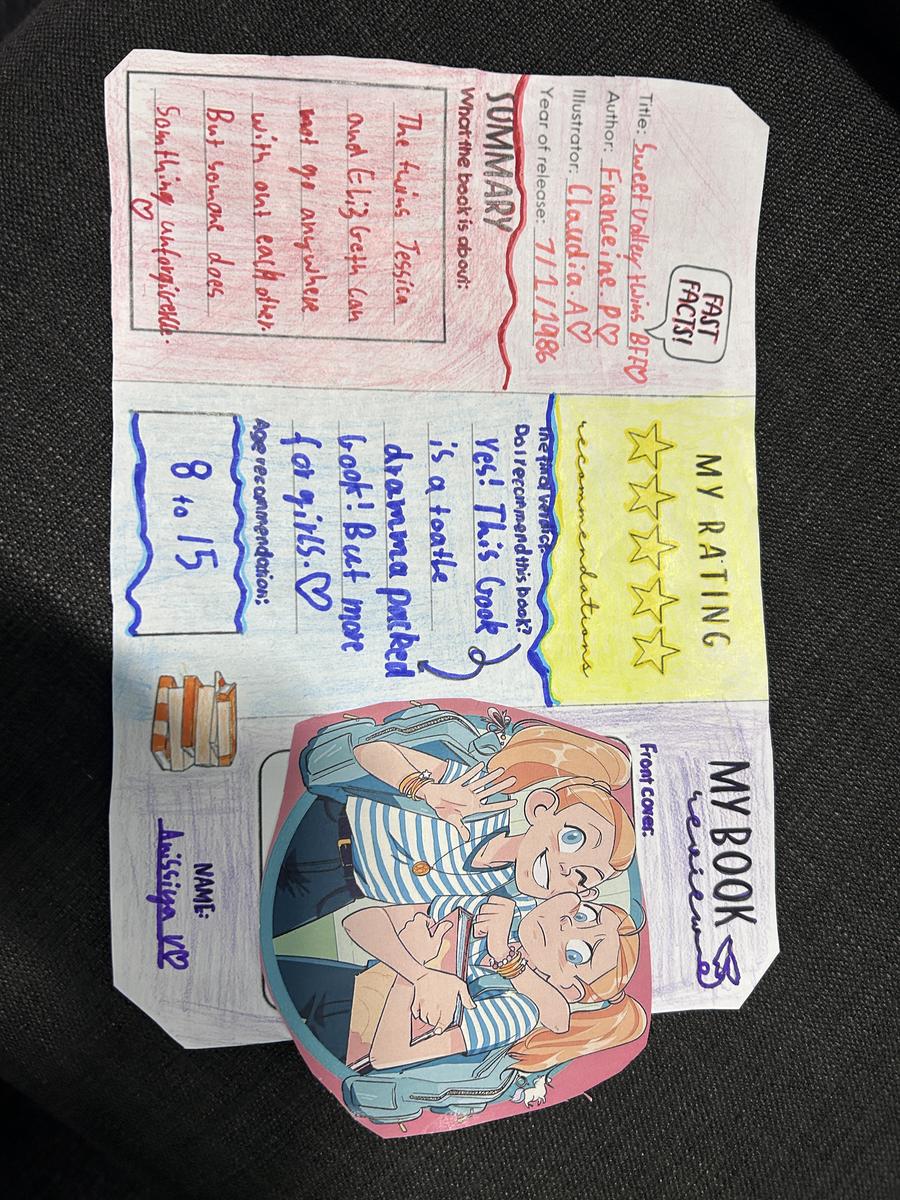 FAST
FACTS!
Title: Sweet Valley twins BFF♡
Author: Franceine.P♡
Illustrator: Claudia.A♡
Year of release: 7/1/1986
SUMMARY
What the book is about:
The twins Jessica
and Eliz Geth can
not go anywhere
with out each other.
But somone does
Somthing unforgiveble.
♡
MY RATING
recommendations
The final verdict:
Do I recommend this book?
Yes! This book
is a toatle
dramma packed
book! But more
for girls.♡
Age recommendation:
8 to 15
MY BOOK
review
Front cover:
NAME:
Anissiya V♡